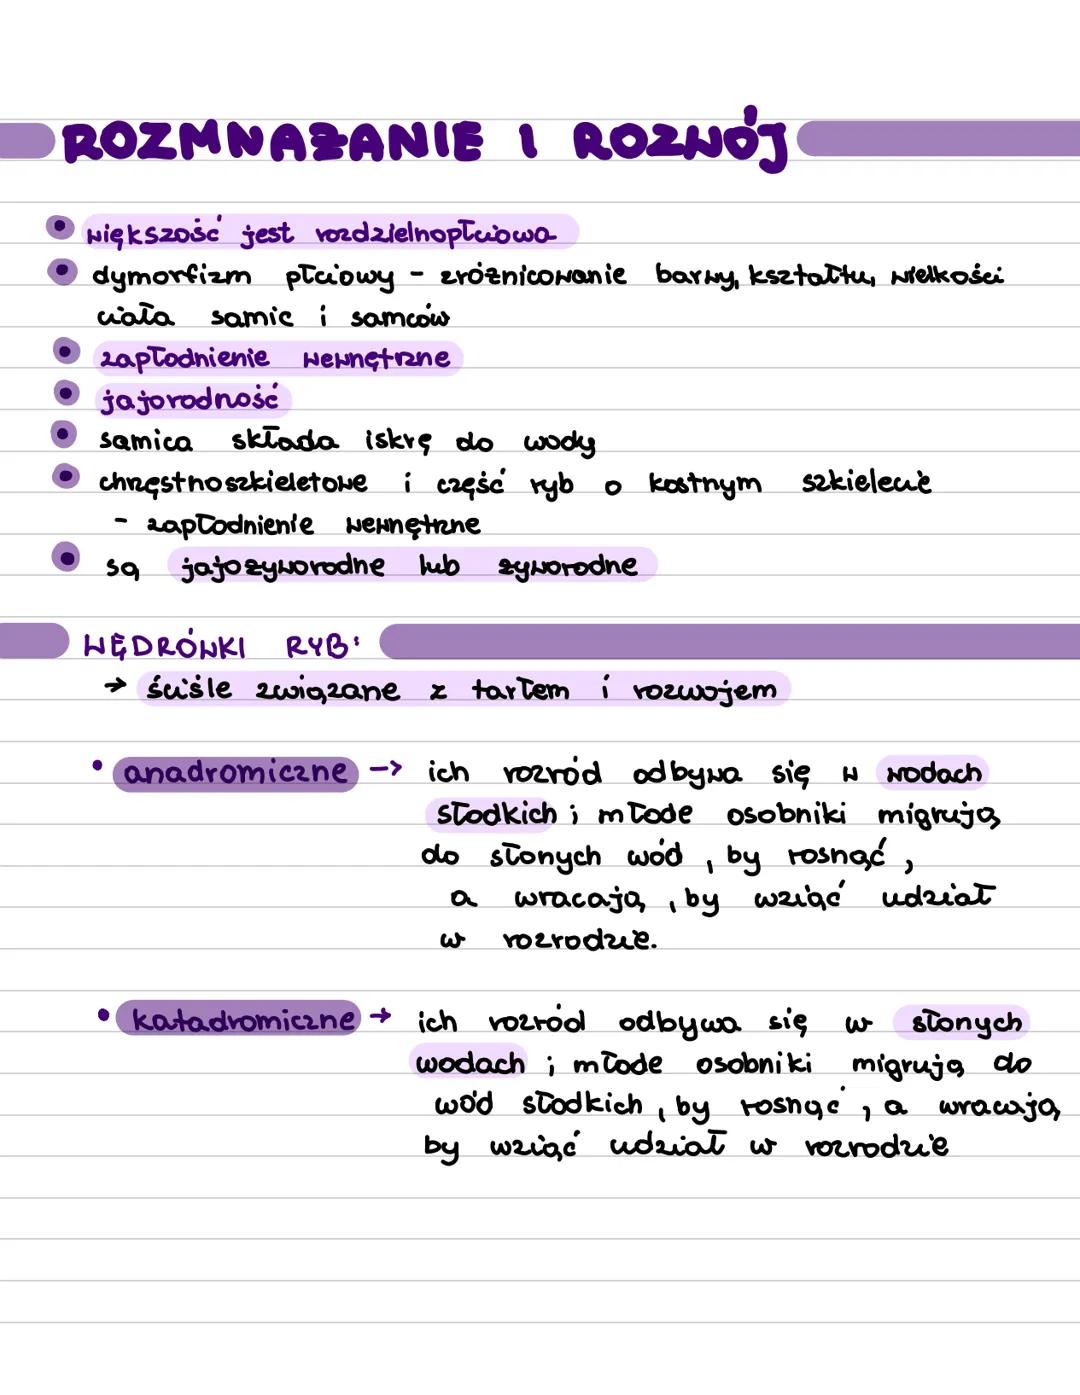 ROZMNAŻANIE I ROZWÓJ
większość jest rozdzielnopłciowa
dymorfizm płciowy - zróżnicowanie barwy, kształtu, wielkości
ciała samic i samców
zapłodnienie wewnętrzne
jajorodność
samica składa iskrę do wody
chrzęstnoszkieletowe i część ryb o kostnym szkielecie
- zapłodnienie wewnętrzne
są jajożyworodne lub żyworodne
WĘDRÓWKI RYB:
→ ściśle związane z tarłem i rozwojem
• anadromiczne → ich rozród odbywa się w wodach
słodkich; młode osobniki migrują
do słonych wód, by rosnąć,
a wracają, by wziąć udział
w rozrodzie.
• katadromiczne → ich rozród odbywa się w słonych
wodach; młode osobniki migrują do
wód słodkich, by rosnąć, a wracają,
by wziąć udział w rozrodzie